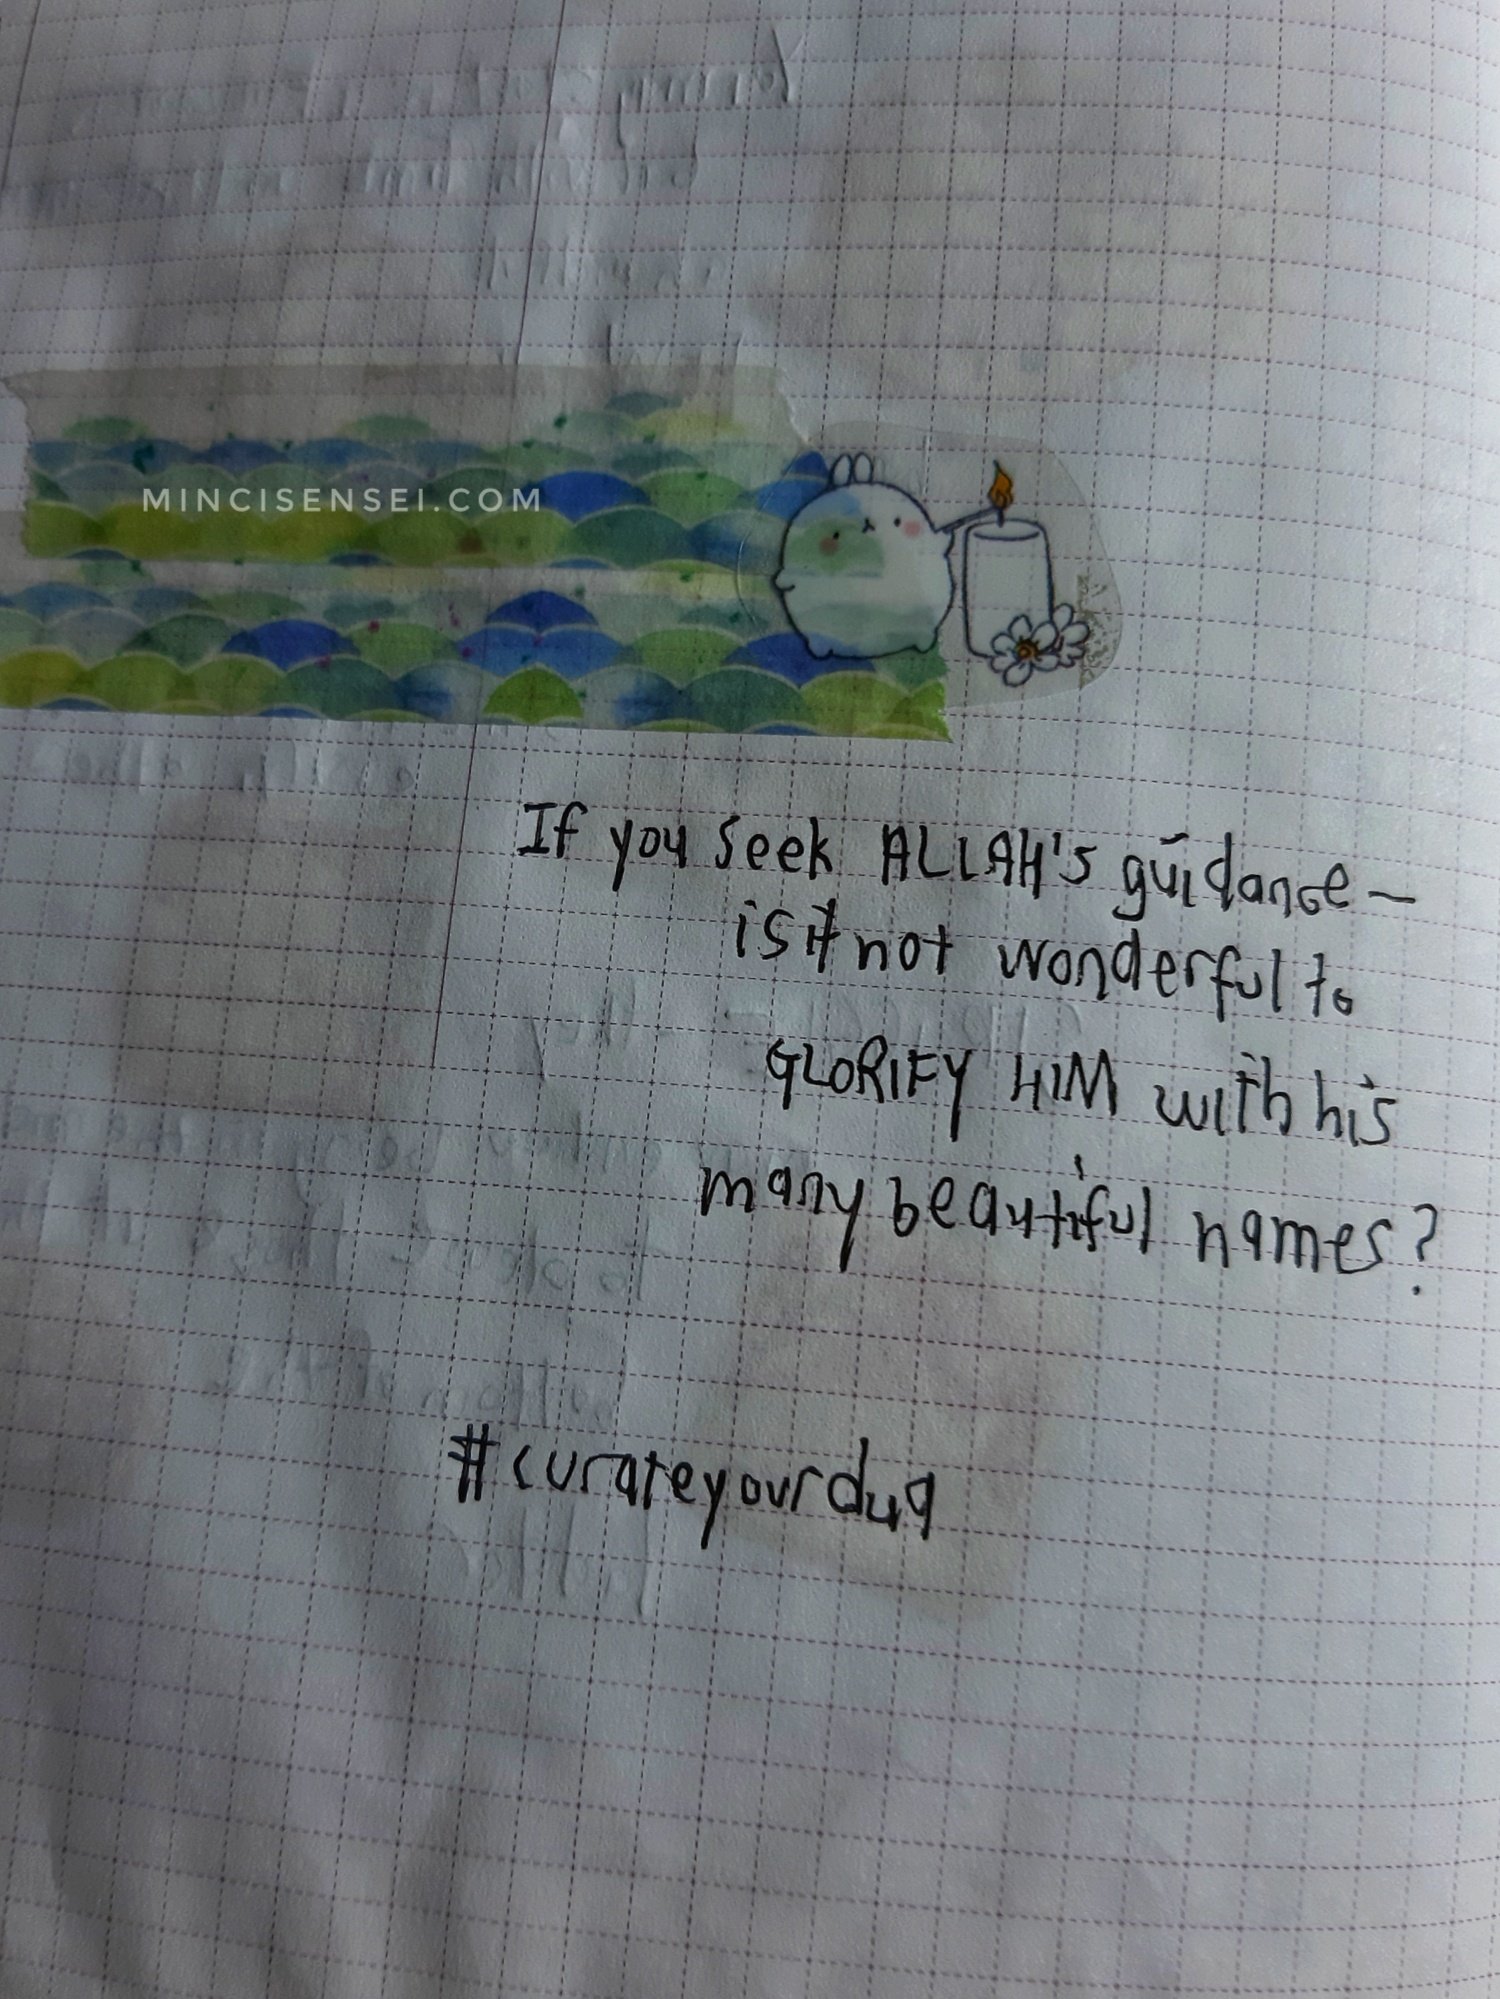 MINCISENSEI.COM
If you seek ALLAH's guidance –
is it not wonderful to
GLORIFY HIM with his
many beautiful names?
#curateyourdua